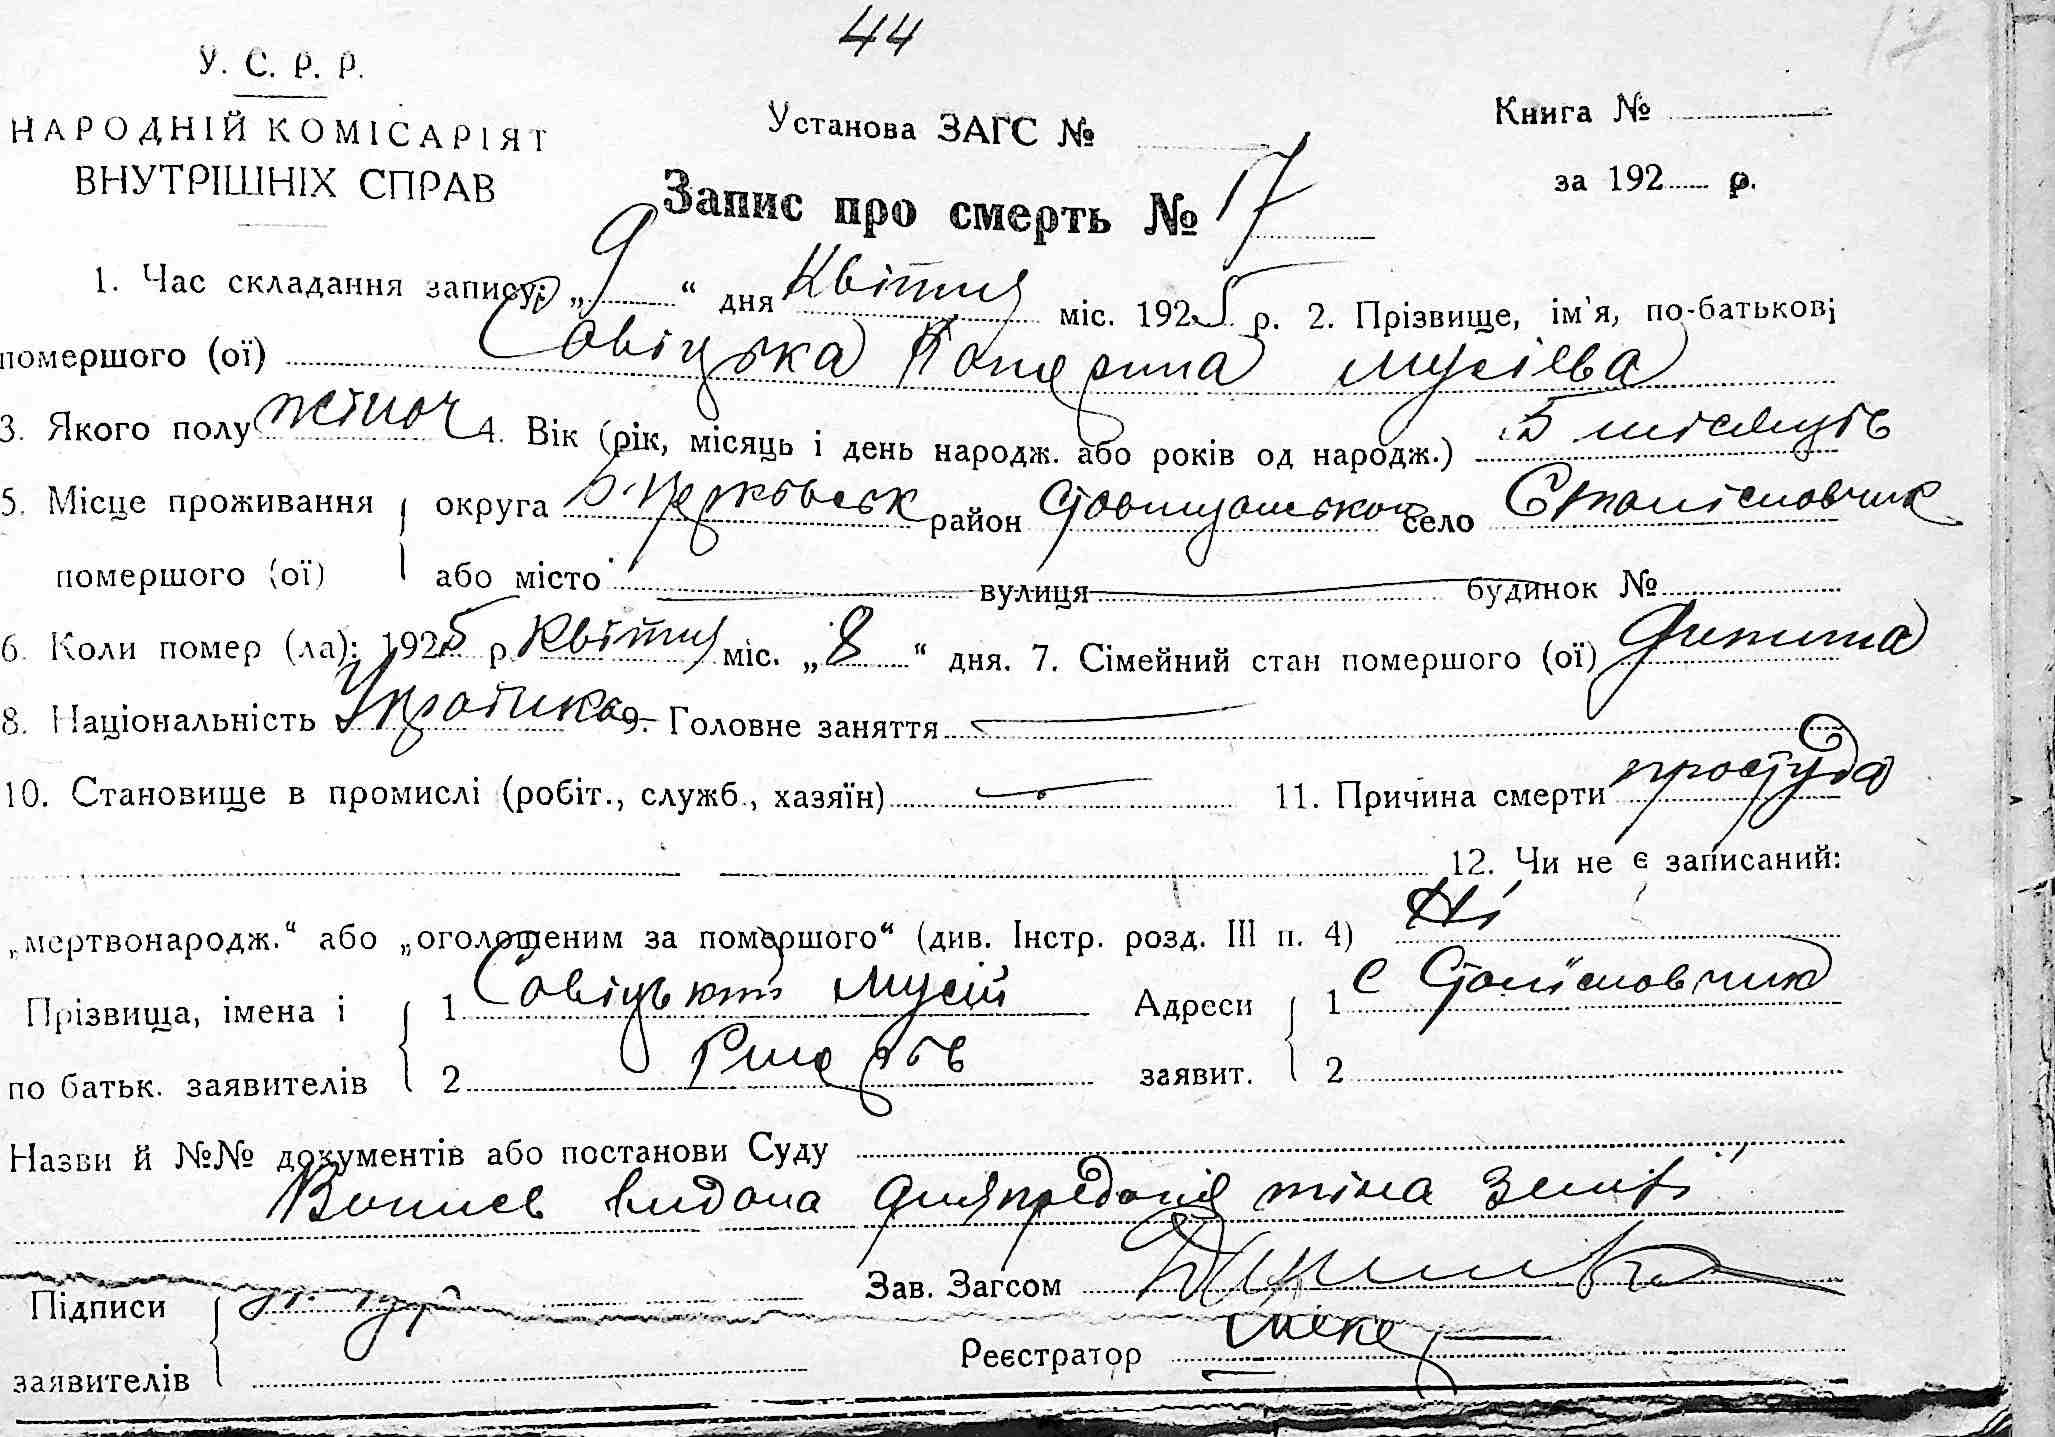 44
17
У. С. Р. Р.
НАРОДНІЙ КОМІСАРІЯТ
ВНУТРІШНІХ СПРАВ
Установа ЗАГС №
Книга №
за 192 р.
Запис про смерть № 17
1. Час складання запису: „9“ дня Квітня міс. 1925 р. 2. Прізвище, ім'я, по-батькові
помершого (ої) Савіцька Катерина Мусієва
3. Якого полу жіноч 4. Вік (рік, місяць і день народж. або років од народж.) 5 місяців
5. Місце проживання помершого (ої) округа Б-Церковськ район Ставищанськой село Станіславчик
або місто вулиця будинок №
6. Коли помер (ла): 1925 р. Квітня міс. „8“ дня. 7. Сімейний стан помершого (ої) дитина
8. Національність Українка 9. Головне заняття
10. Становище в промислі (робіт., служб., хазяїн) 11. Причина смерти простуда
12. Чи не є записаний:
„мертвонародж.“ або „оголошеним за помершого“ (див. Інстр. розд. III п. 4) Ні
Прізвища, імена і по батьк. заявителів 1 Савіцький Мусій
2
Адреси заявит. 1 с Станіславчик
2
Назви й №№ документів або постанови Суду
видана для предания тіла землі
Підписи заявителів
Зав. Загсом
Реєстратор